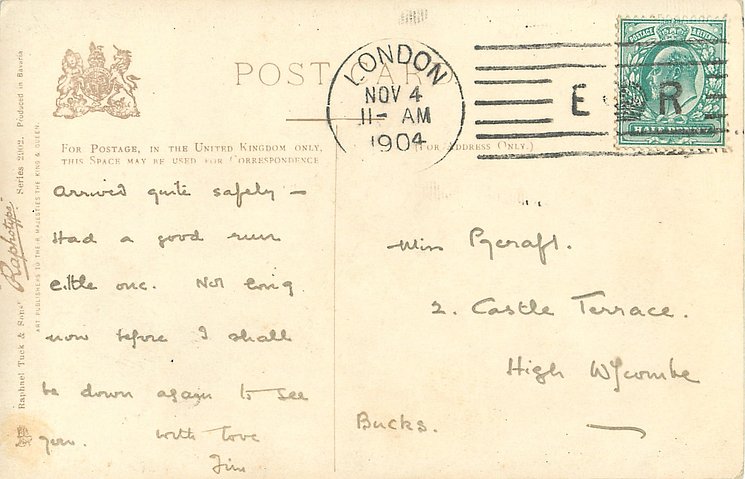 POST CARD
LONDON
NOV 4
11- AM
1904
E R
POSTAGE
HALF PENNY
FOR POSTAGE, IN THE UNITED KINGDOM ONLY,
THIS SPACE MAY BE USED FOR CORRESPONDENCE
(FOR ADDRESS ONLY.)
Arrived quite safely –
Had a good run
little one. Not long
now before I shall
be down again to see
you. With love
Jim
Miss Pycraft.
2. Castle Terrace.
High Wycombe
Bucks.
Raphael Tuck & Sons' "Raphotype" Series 2162. Produced in Bavaria
ART PUBLISHERS TO THEIR MAJESTIES THE KING & QUEEN.